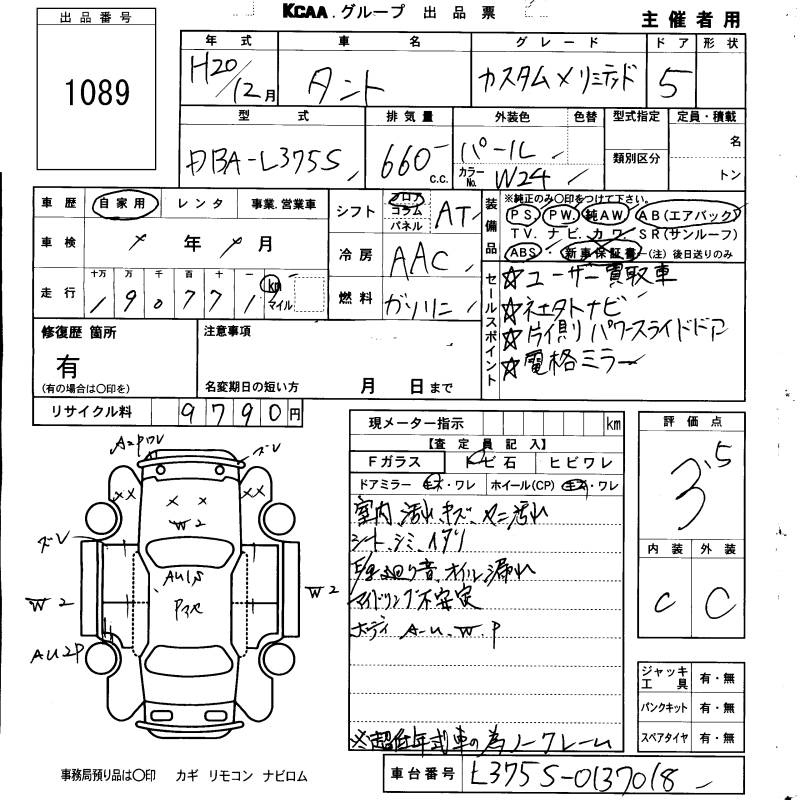 KCAA.グループ 出品票
主催者用
出品番号
1089
年式 車名 グレード ドア 形状
H20/12月 タント カスタムXリミテッド 5
型式 排気量 外装色 色替 型式指定 定員・積載
DBA-L375S 660 c.c. パール
カラーNo. W24
類別区分
名
トン
車歴 自家用 レンタ 事業.営業車
シフト フロア コラム パネル AT
車検 年 月
冷房 AAC
走行 十万 万 千 百 十 一 km マイル
190771
燃料 ガソリン
装備品
※純正のみ〇印をつけて下さい。
PS. PW. 純AW AB(エアバック)
TV. ナビ. カワ SR(サンルーフ)
ABS・新車保証書-(注)後日送りのみ
セールスポイント
☆ユーザー買取車
☆ネエタトナビ
☆片側パワースライドドア
☆電格ミラー
修復歴 箇所
有
(有の場合は〇印を)
注意事項
名変期日の短い方 月 日まで
リサイクル料 9790円
現メーター指示 km
【査定員記入】
Fガラス トビ石 ヒビワレ
ドアミラー キズ・ワレ ホイール(CP) キズ・ワレ
室内汚れ.キズ.ヤニ汚れ
シート.シミ.イタリ
オイル漏れ
アイドリング不安定
ボディ A.U.W.P
※超低年式車の為ノークレーム
評価点
3.5
内装 外装
C C
ジャッキ工具 有・無
パンクキット 有・無
スペアタイヤ 有・無
A2PワレズレXX
XX
XX
W2
ズレ
AU1,S
W2
W2
AU2P
事務局預り品は〇印 カギ リモコン ナビロム
車台番号 L375S-0137018